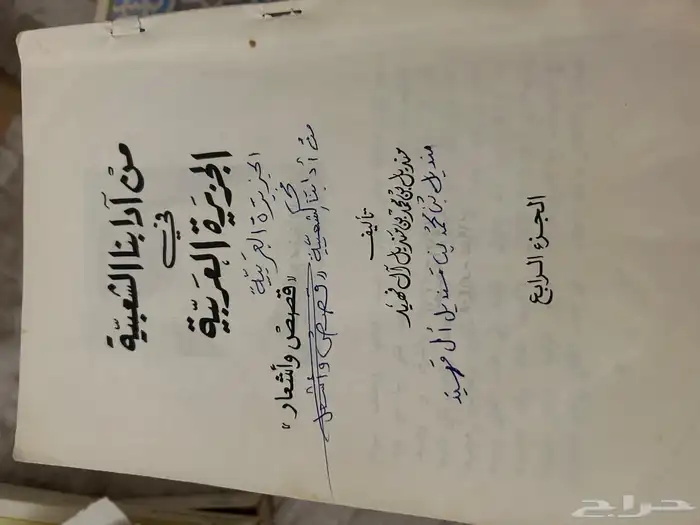 من آدابنا الشعبيّة
في
الجزيرة العربيّة
الجزيرة العربيّة
"قصص وأشعار"
من آدابنا الشعبية
في
قصص وأشعار
تأليف
منديل بن محمد بن منديل آل فهيد
منديل بن محمد بن منديل آل فهيد
الجزء الرابع
حراج